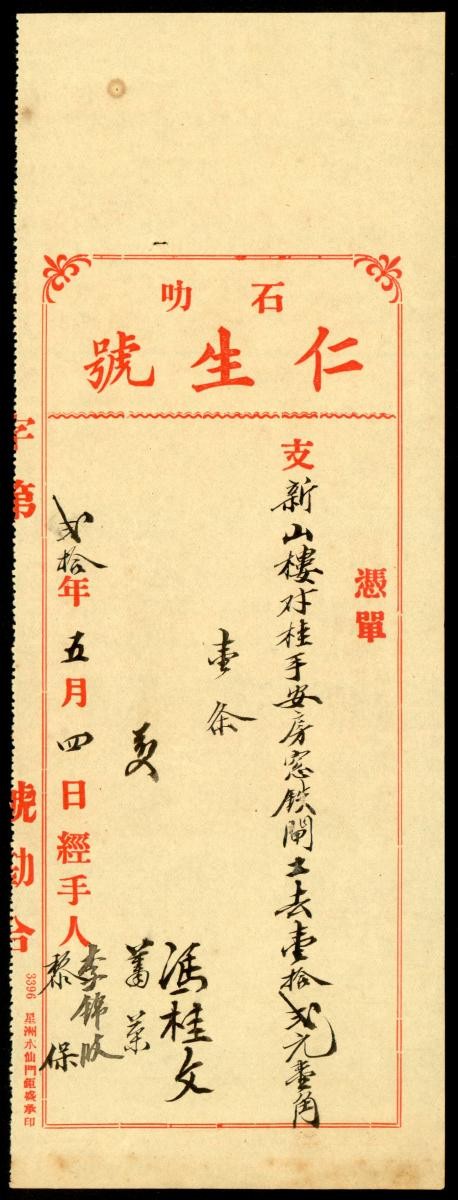 石叻
仁生號
憑單
支新山樓对桂手安房窓鉄閘工去壹拾弍元壹角
壹条
馮桂文
萬葉
弍拾年五月四日經手人李錦
黎保
字第 號勘合
3396 星洲水仙門鉅盛承印